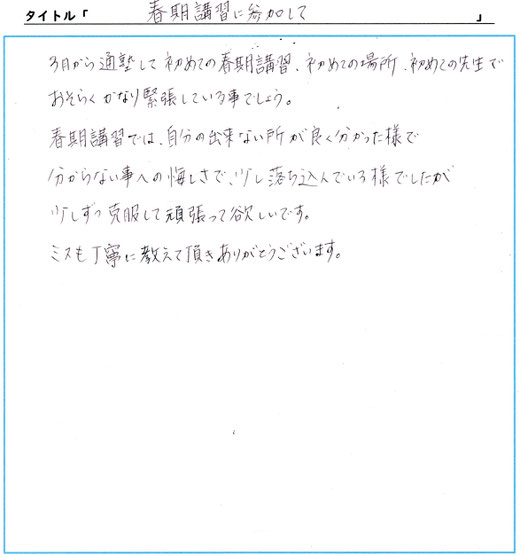 タイトル「 春期講習に参加して 」
3月から通塾して初めての春期講習、初めての場所、初めての先生で
おそらくかなり緊張している事でしょう。
春期講習では、自分の出来ない所が良く分かった様で
分からない事への悔しさで、少し落ち込んでいる様でしたが
少しずつ克服して頑張って欲しいです。
ミスも丁寧に教えて頂きありがとうございます。